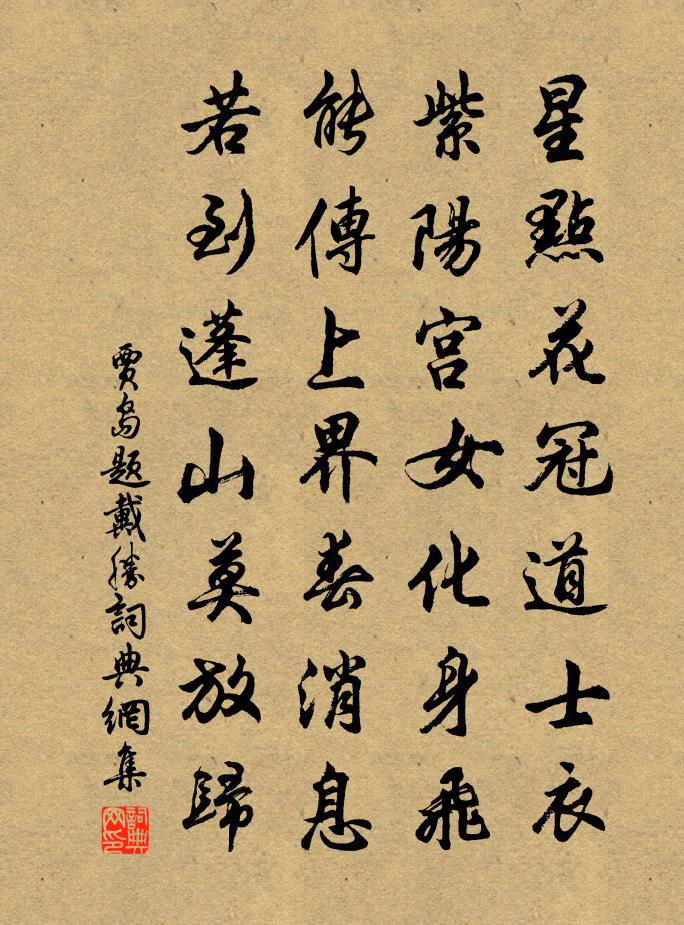 星點花冠道士衣
紫陽宮女化身飛
能傳上界春消息
若到蓬山莫放歸
賈島題戴勝詞典網集
詞典網印